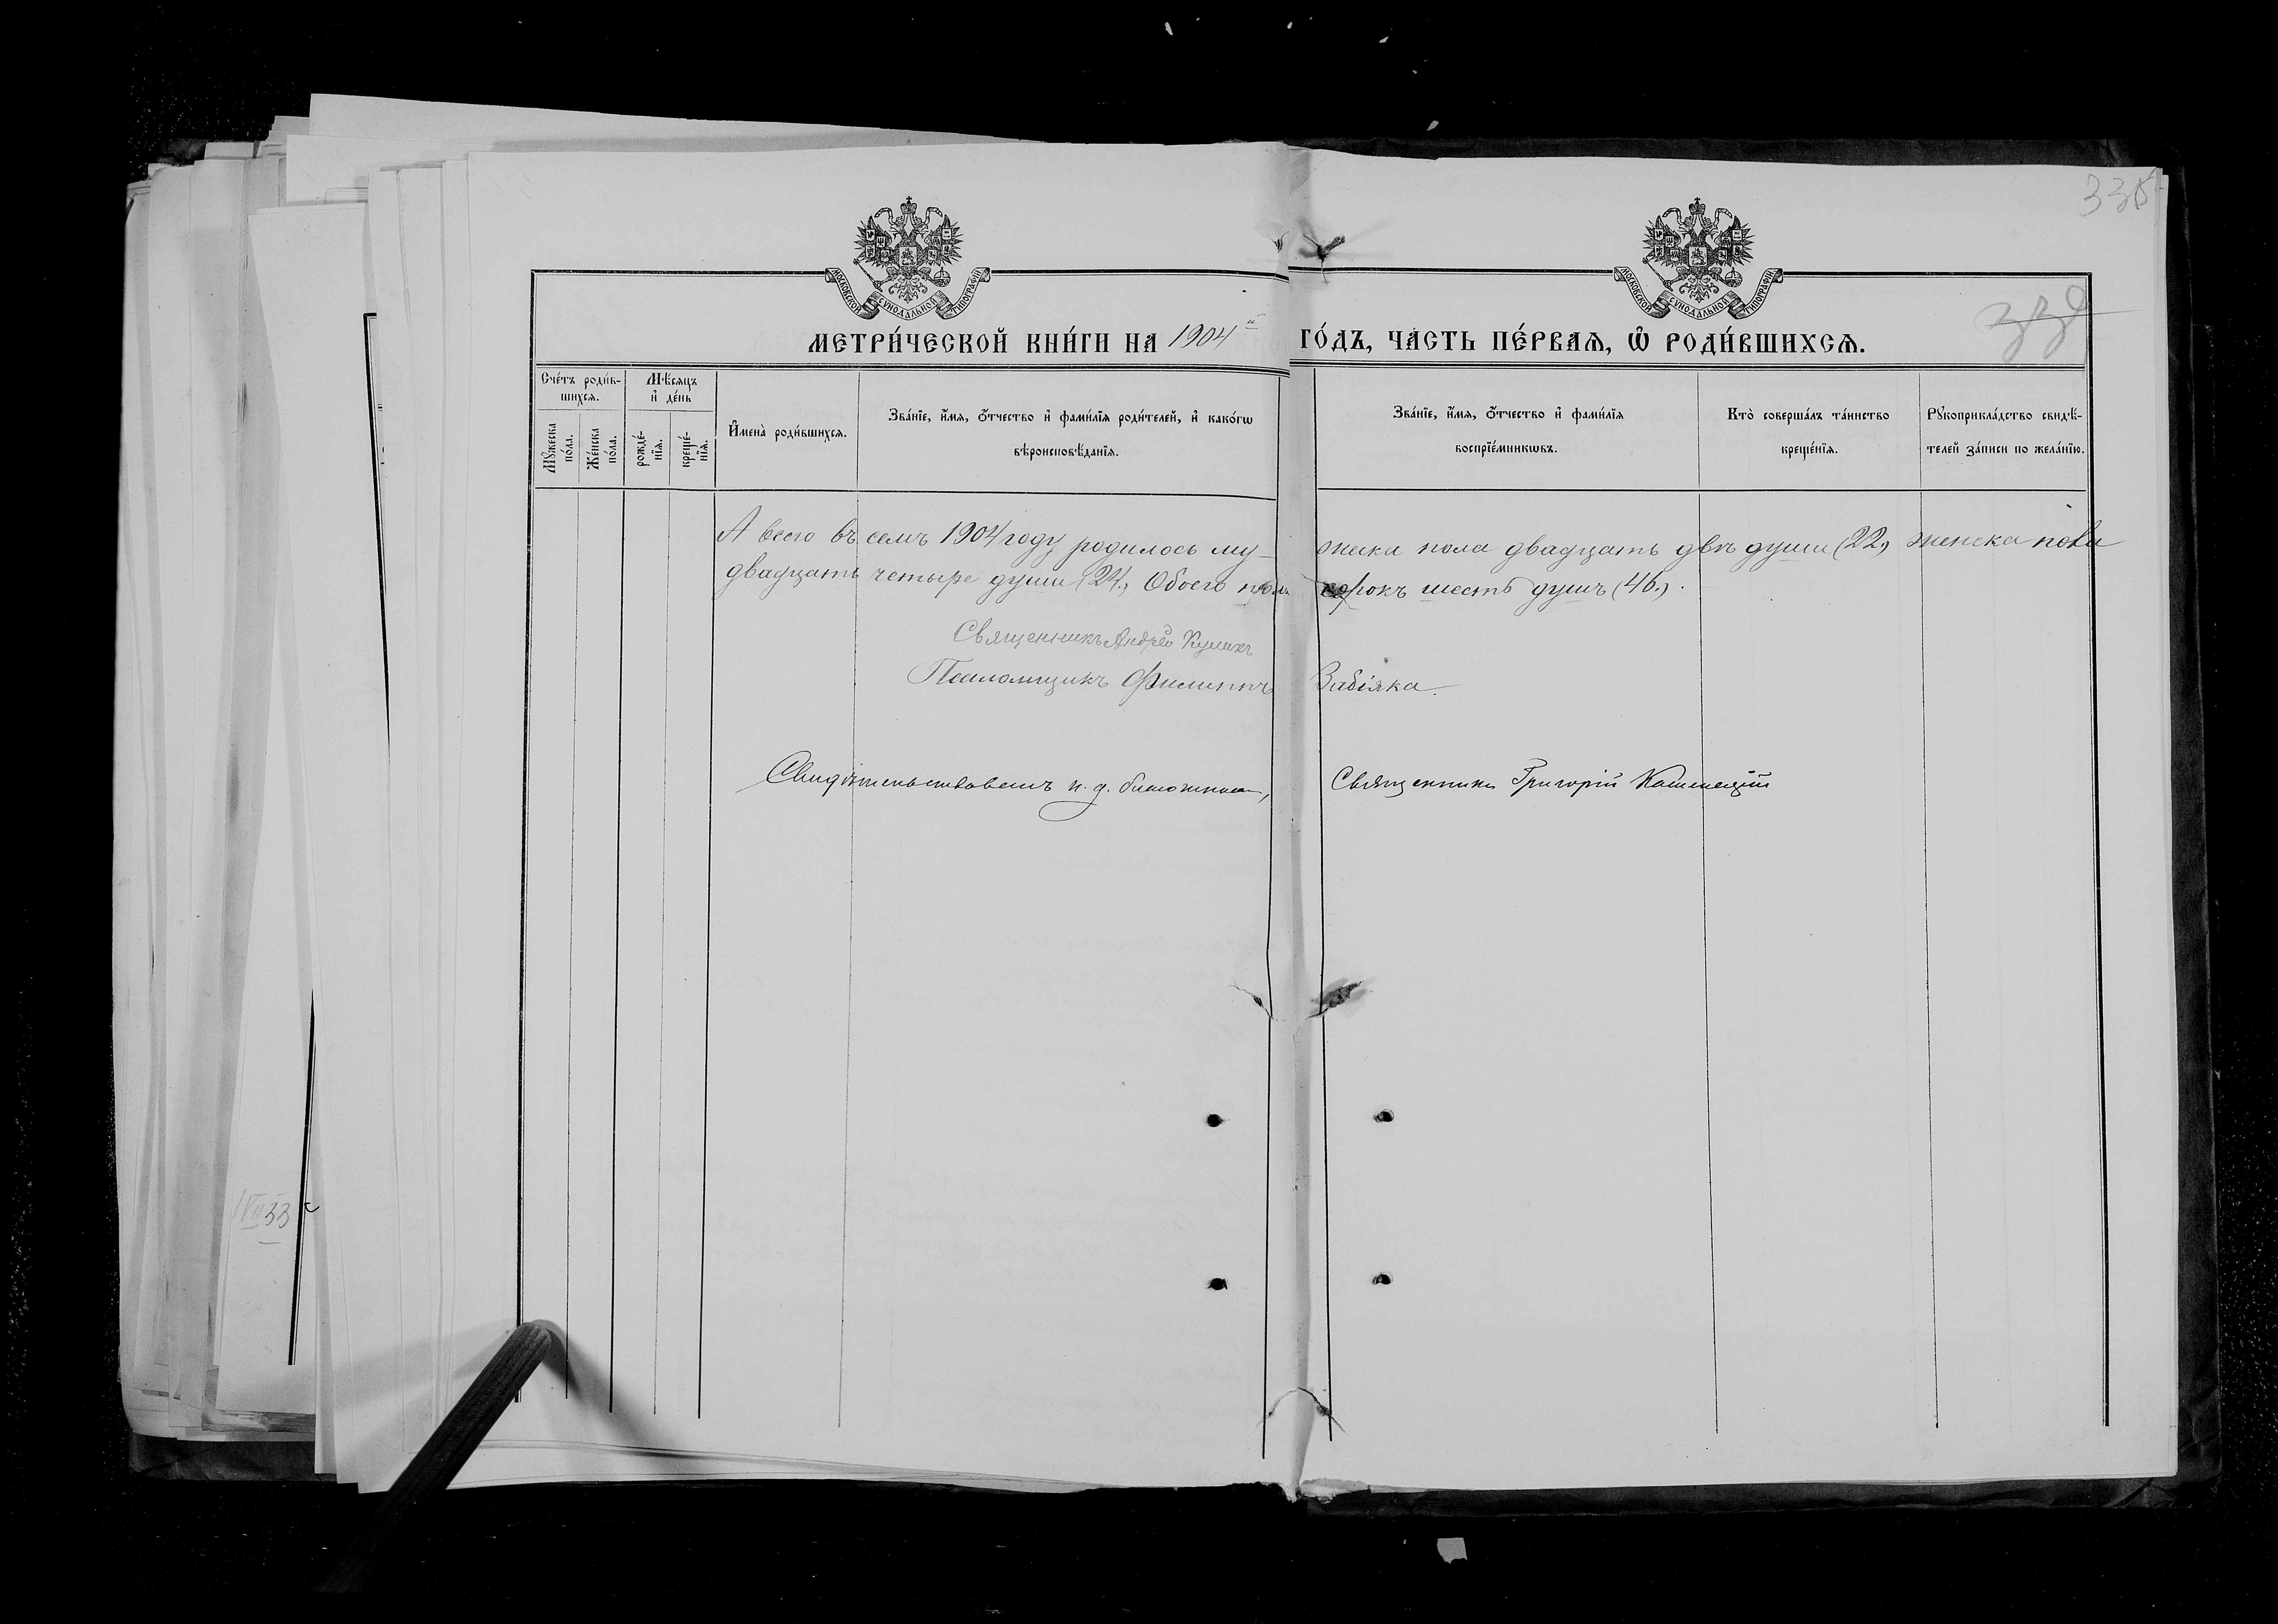 335
338
МОСКОВСКОЙ СУНОДАЛЬНОЙ ТИПОГРАФІИ
МОСКОВСКОЙ СУНОДАЛЬНОЙ ТИПОГРАФІИ
МЕТРИ́ЧЕСКОЙ КНИ́ГИ НА 1904й ГО́ДЪ, ЧА́СТЬ ПЕ́РВАѦ, Ѽ РОДИ́ВШИХСѦ.
Сче́тъ роди́в-
шихсѧ.
Мѣ́сѧцъ
и҆ де́нь
Мꙋ́жеска
по́ла.
Же́нска
по́ла.
рожде́-
нїѧ.
креще́-
нїѧ.
И҆мена̀ роди́вшихсѧ.
Зва́нїе, и҆́мѧ, ѻ҆́тчество и҆ фами́лїѧ роди́телей, и҆ како́гѡ
вѣроисповѣ́данїѧ.
Зва́нїе, и҆́мѧ, ѻ҆́тчество и҆ фами́лїѧ
воспрїе́мникѡвъ.
Кто̀ соверша́лъ та́инство
креще́нїѧ.
Рꙋкоприкла́дство свидѣ́-
телей за́писи по жела́нїю.
А всего въ семъ 1904 году родилось му-жеска пола двадцать двѣ души (22), женска пола
двадцать четыре души (24), Обоего пола сорокъ шесть душъ (46).
Священникъ Андрей Куликъ
Псаломщикъ Филиппъ Забіяка.
Священникъ Григорій
IV 33